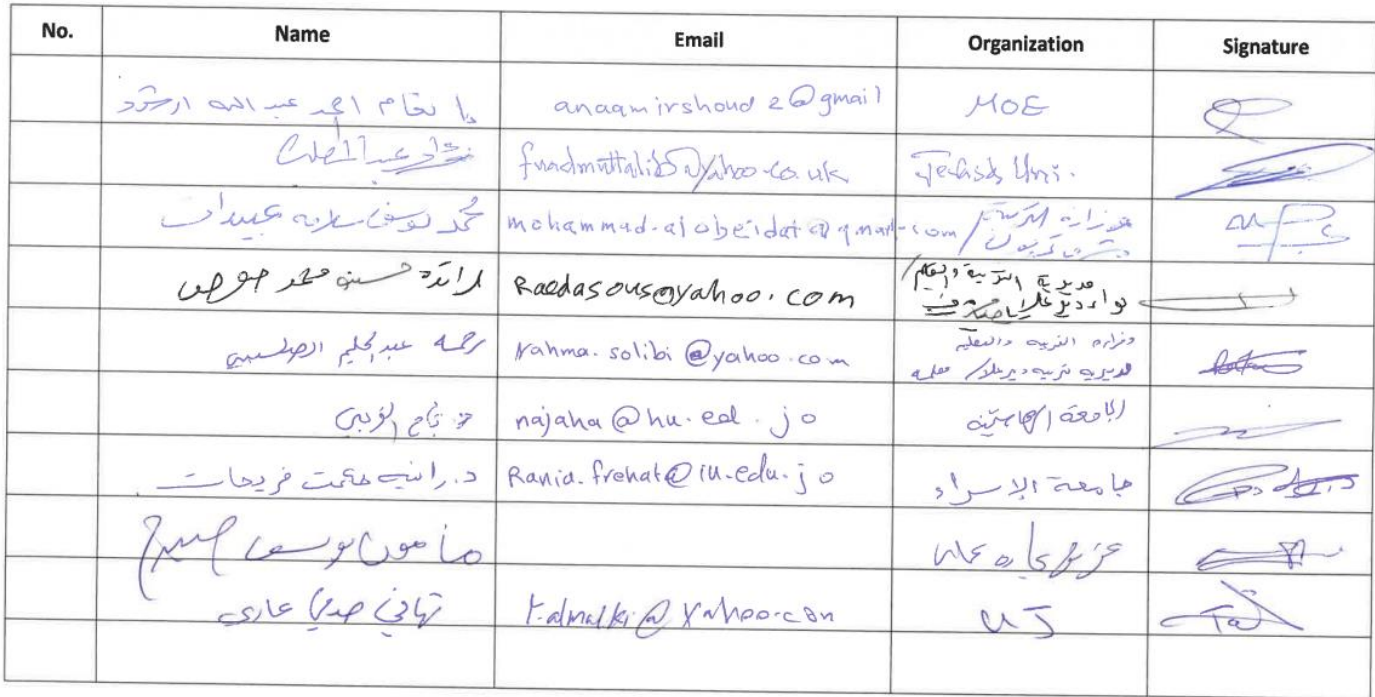 No. Name Email Organization Signature
إنعام احمد عبد الله ارشود anaamirshoud2@gmail MOE
فؤاد عبد المطلب fuadmuttalib@yahoo.co.uk Jerash Uni.
محمد يوسف سلامه عبيدات mohammad.alobeidat@gmail.com / وزارة التربية
رائدة حسين محمد صوص Raedasous@yahoo.com مديرية التربية والتعليم/
لواء دير علا
رحمه عبدالحليم الصليبي rahma.solibi@yahoo.com وزاره التربيه والتعليم
مديريه تربيه ديرعلا / معلمه
د. نجاح najaha@hu.ed.jo الجامعة الهاشمية
د. رانيه حكمت فريحات Rania.frehat@iu.edu.jo جامعة الإسراء
مأمون يوسف
تهاني t.almalki@yahoo.com UJ